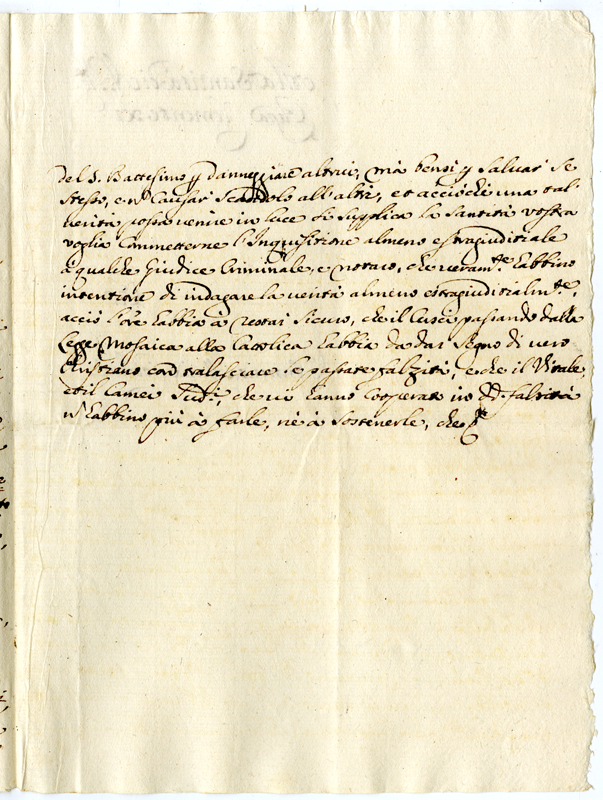 del S. Battesimo p danneggiare altrui, mà bensi p saluar se
stesso, e nõ causar scandolo all'altri, et acciòche una tal
uerità possa uenire in luce si supplica la Santità vostra
voglia Commetterne l'Inquisitione almeno estragiuditiale
à qualche Giudice Criminale, e notaro, che ueram.te habbino
intentione di indagare la uerità almeno estragiuditialm.te,
acciò l'ore habbia à restar sicuro, che il passando dalla
legge Mosaica alla Cattolica habbia da dar segno di uero
Christiano con tralasciare le passate falzità, e che il Vitale,
et il Camei, che ui hanno cooperato in dd. falsità
nõ habbino più à farle, nè à sostenerle, che